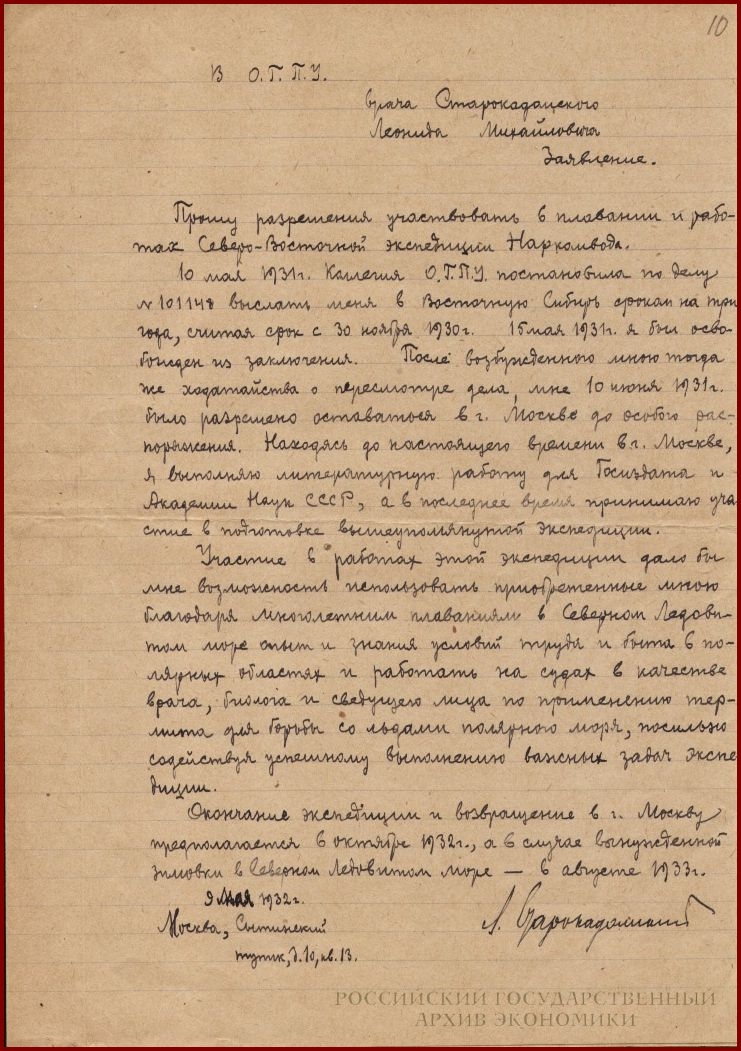 10
В О.Г.П.У.
врача Старокадомского
Леонида Михайловича
Заявление.
Прошу разрешения участвовать в плавании и рабо-
тах Северо-Восточной экспедиции Наркомвода.
10 мая 1931г. Коллегия О.Г.П.У. постановила по делу
№ 101148 выслать меня в Восточную Сибирь сроком на три
года, считая срок с 30 ноября 1930г. 15 мая 1931г. я был осво-
божден из заключения. После возбужденного мною тогда
же ходатайства о пересмотре дела, мне 10 июня 1931г.
было разрешено оставаться в г. Москве до особого рас-
поряжения. Находясь до настоящего времени в г. Москве,
я выполняю литературную работу для Госиздата и
Академии Наук СССР, а в последнее время принимаю уча-
стие в подготовке вышеупомянутой экспедиции.
Участие в работах этой экспедиции дало бы
мне возможность использовать приобретенные мною
благодаря многолетним плаваниям в Северном Ледови-
том море опыт и знания условий труда и быта в по-
лярных областях и работать на судах в качестве
врача, биолога и сведущего лица по применению тер-
мита для борьбы со льдами полярного моря, посильно
содействуя успешному выполнению важных задач экспе-
диции.
Окончание экспедиции и возвращение в г. Москву
предполагается в октябре 1932г., а в случае вынужденной
зимовки в Северном Ледовитом море — в августе 1933г.
9 мая 1932г.
Л. Старокадомский
Москва, Сытинский
тупик, д. 10, кв. 13.
РОССИЙСКИЙ ГОСУДАРСТВЕННЫЙ
АРХИВ ЭКОНОМИКИ